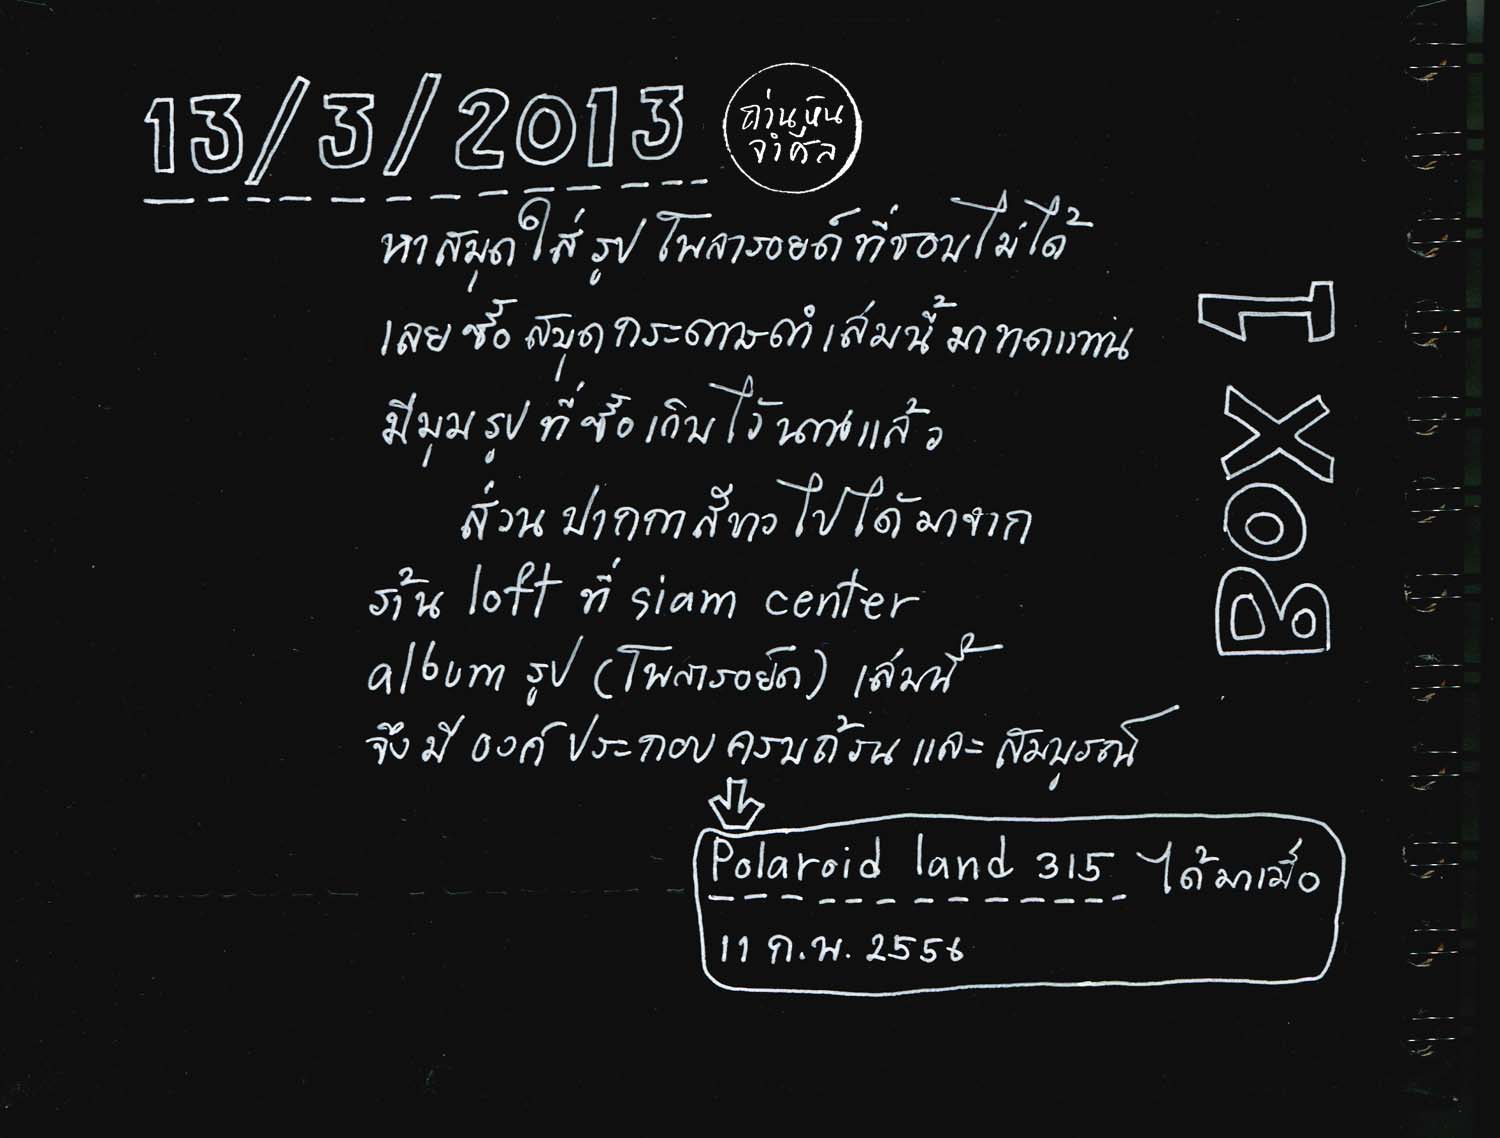 13/3/2013
ถ่านหิน
จำศีล
หาสมุดใส่รูปโพลารอยด์ที่ชอบไม่ได้
เลยซื้อสมุดกระดาษดำเล่มนี้มาทดแทน
มีมุมรูปที่ซื้อเก็บไว้นานแล้ว
ส่วนปากกาสีขาวไปได้มาจาก
ร้าน loft ที่ siam center
album รูป (โพลารอยด์) เล่มนี้
จึงมีองค์ประกอบครบถ้วนและสมบูรณ์
Polaroid land 315 ได้มาเมื่อ
11 ก.พ. 2556
BOX 1